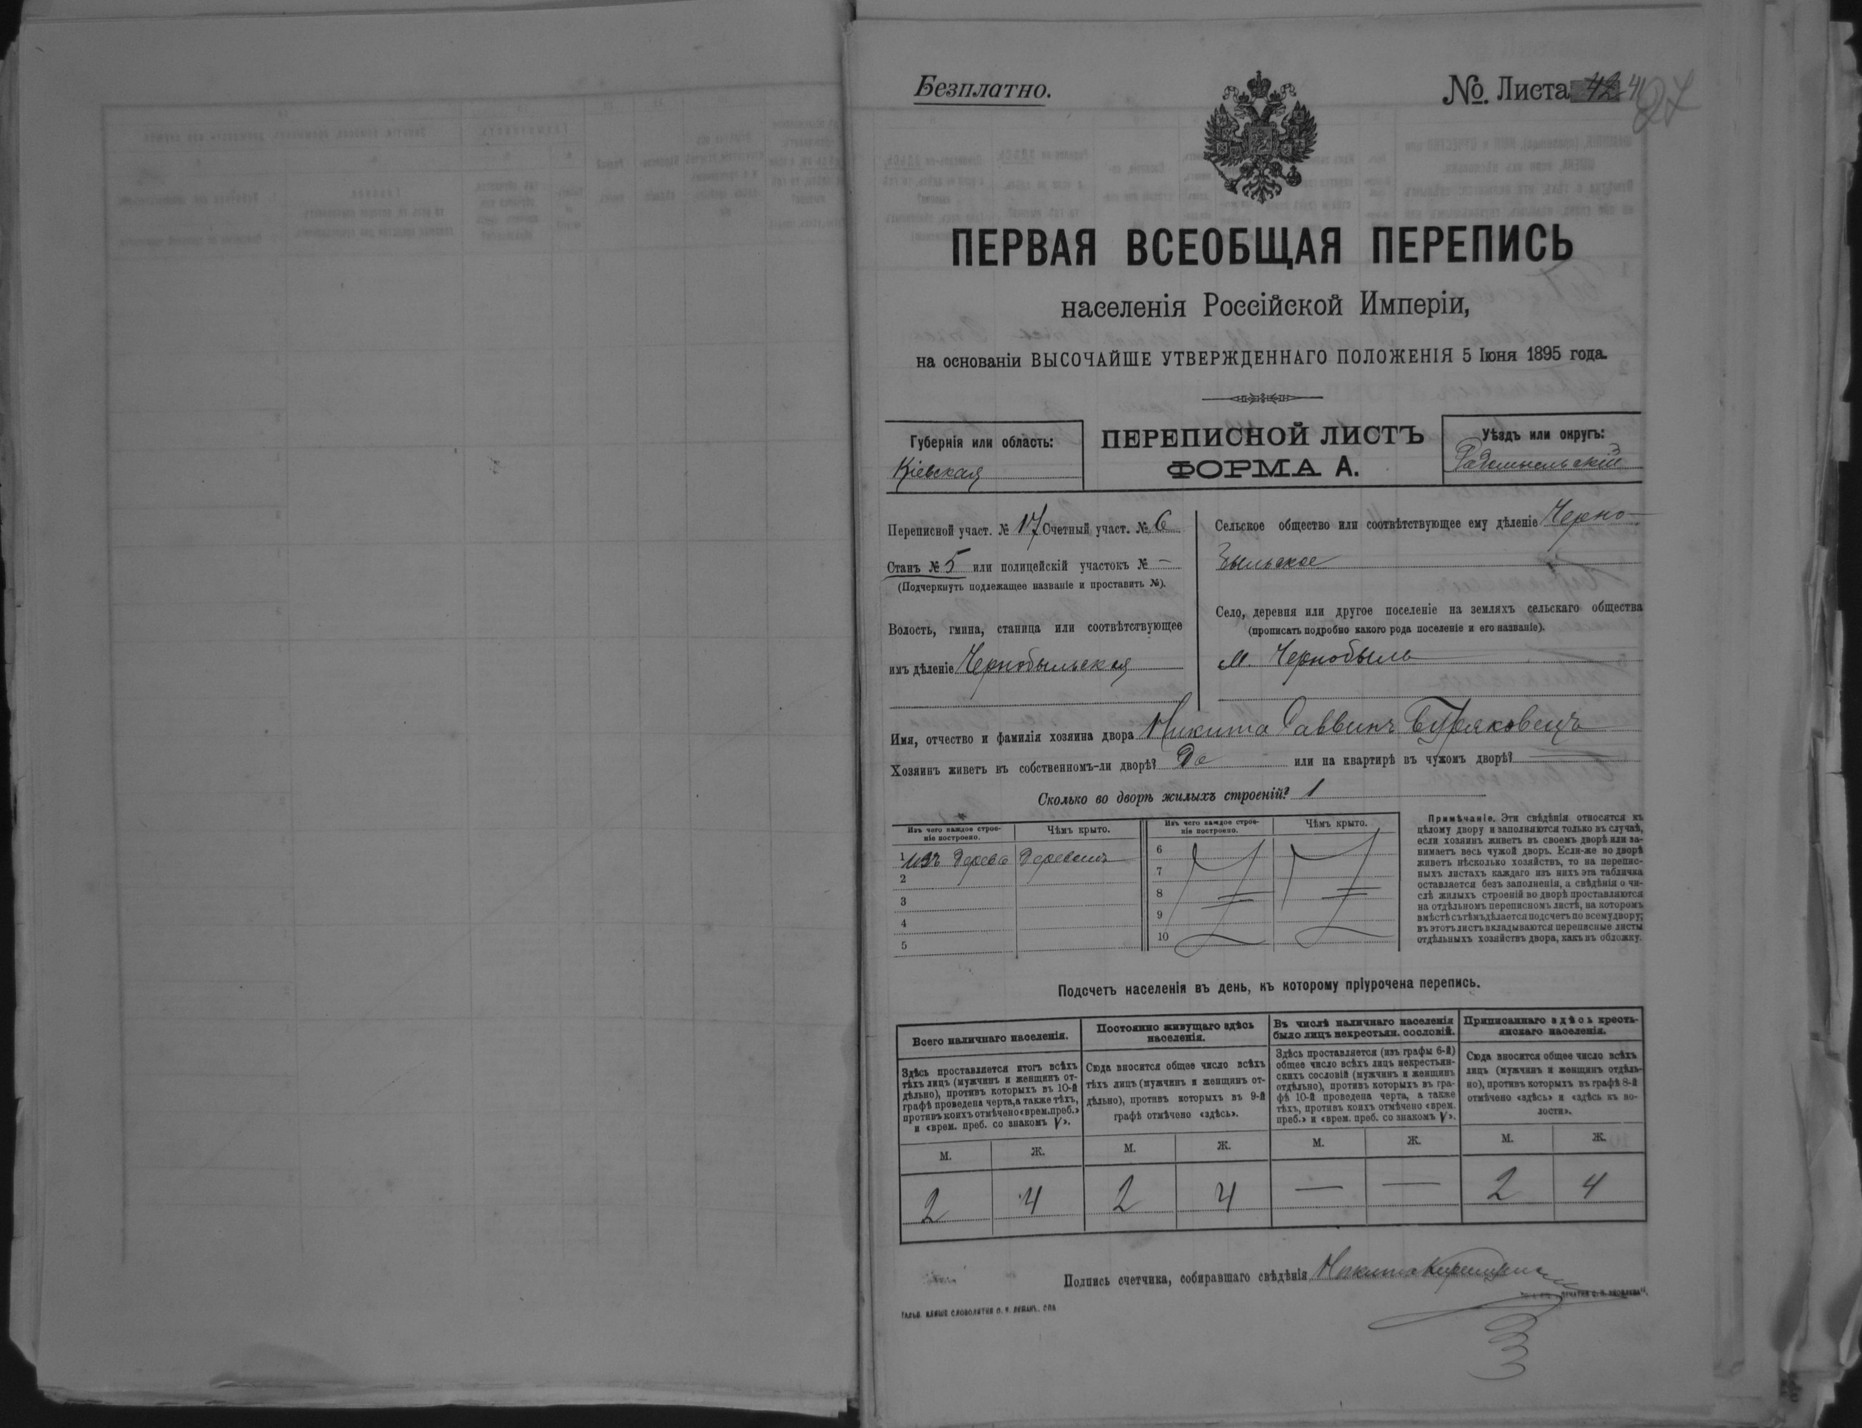 Безплатно.
№. Листа 42 41
27
ПЕРВАЯ ВСЕОБЩАЯ ПЕРЕПИСЬ
населенія Россійской Имперіи,
на основаніи ВЫСОЧАЙШЕ УТВЕРЖДЕННАГО ПОЛОЖЕНІЯ 5 Іюня 1895 года.
Губернія или область:
Кіевская
ПЕРЕПИСНОЙ ЛИСТЪ
ФОРМА А.
Уѣздъ или округъ:
Радомысльскій
Переписной участ. № 17 Счетный участ. № 6
Станъ № 5 или полицейскій участокъ № —
(Подчеркнуть подлежащее названіе и проставить №).
Волость, гмина, станица или соотвѣтствующее
имъ дѣленіе Чернобыльская
Сельское общество или соотвѣтствующее ему дѣленіе Черно-
быльское
Село, деревня или другое поселеніе на земляхъ сельскаго общества
(прописать подробно какого рода поселеніе и его названіе).
м. Чернобыль
Имя, отчество и фамилія хозяина двора Никита Саввинъ Буряковецъ
Хозяинъ живетъ въ собственномъ-ли дворѣ? Да или на квартирѣ въ чужомъ дворѣ?
Сколько во дворѣ жилыхъ строеній? 1
Изъ чего каждое строе-
ніе построено.
Чѣмъ крыто.
Изъ чего каждое строе-
ніе построено.
Чѣмъ крыто.
1 изъ дерева деревомъ
2
3
4
5
6
7
8
9
10
Примѣчаніе. Эти свѣдѣнія относятся къ
цѣлому двору и заполняются только въ случаѣ,
если хозяинъ живетъ въ своемъ дворѣ или за-
нимаетъ весь чужой дворъ. Если-же во дворѣ
живетъ нѣсколько хозяйствъ, то на перепис-
ныхъ листахъ каждаго изъ нихъ эта табличка
оставляется безъ заполненія, а свѣдѣнія о чи-
слѣ жилыхъ строеній во дворѣ проставляются
на отдѣльномъ переписномъ листѣ, на которомъ
вмѣстѣ съ тѣмъ дѣлается подсчетъ по всему двору;
въ этотъ листъ вкладываются переписные листы
отдѣльныхъ хозяйствъ двора, какъ въ обложку.
Подсчетъ населенія въ день, къ которому пріурочена перепись.
Всего наличнаго населенія.
Здѣсь проставляется итогъ всѣхъ
тѣхъ лицъ (мужчинъ и женщинъ от-
дѣльно), противъ которыхъ въ 10-й
графѣ проведена черта, а также тѣхъ,
противъ коихъ отмѣчено «врем. преб.»
и «врем. преб. со знакомъ V».
Постоянно живущаго здѣсь
населенія.
Сюда вносится общее число всѣхъ
тѣхъ лицъ (мужчинъ и женщинъ от-
дѣльно), противъ которыхъ въ 9-й
графѣ отмѣчено «здѣсь».
Въ числѣ наличнаго населенія
было лицъ некрестьян. сословій.
Здѣсь проставляется (изъ графы 6-й)
общее число всѣхъ лицъ некрестьян-
скихъ сословій (мужчинъ и женщинъ
отдѣльно), противъ которыхъ въ гра-
фѣ 10-й проведена черта, а также
тѣхъ, противъ коихъ отмѣчено «врем.
преб.» и «врем. преб. со знакомъ V».
Приписаннаго здѣсь кресть-
янскаго населенія.
Сюда вносится общее число всѣхъ
лицъ (мужчинъ и женщинъ отдѣль-
но), противъ которыхъ въ графѣ 8-й
отмѣчено «здѣсь» и «здѣсь къ во-
лости».
М. Ж. М. Ж. М. Ж. М. Ж.
2 4 2 4 — — 2 4
Подпись счетчика, собиравшаго свѣдѣнія Никита